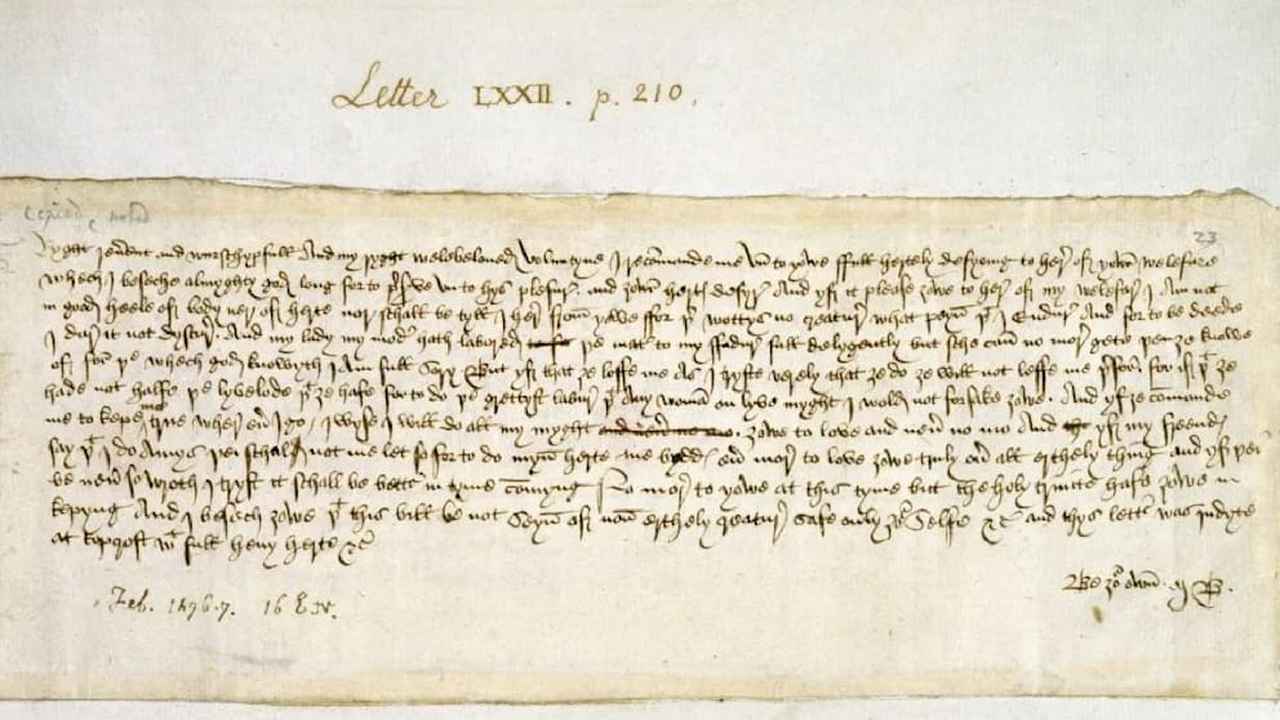 Letter LXXII. p. 210.
copied, noted
23
Ryght reverent and wurschypfull And my ryght welebeloued Voluntyne I recomande me vn to yowe ffull hertely desyring to her of yowr welefare
whech I beseche almyghty god long for to preserve vn to hys plesur and zowr hertys desyr And yf it please zowe to her of my welefar I Am not
in good heele of body ner of herte nor schall be tyll I her from yowe ffor þer wottys no creatur what peyn þt I Endur And for to be deede
I dur it not dyscur And my lady my moder hath labored þe mater to my ffadur full delygently but sche can no mor gete þen ze knowe
of for þe whech god knowyth I Am full Sory But yf that ze loffe me As I tryste verely that ze do ze will not leffe me þerfor for if þt ze
hade not halfe þe lyvelode þt ze hafe for to do þe grettyst labur þt Any woman on lyve myght I wold not forsake zowe. And yf ze comande
me to kepe me true wher euer I go I wyse I will do all my myght zowe to love and neuer no mo And yf my freendys
say þt I do Amys þei schal not me let so for to do myn herte me byddys euer mor to love zowe truly ouer all erthely thing and yf þei
be neuer so wroth I tryst it schall be better in tyme comyng No mor to yowe at this tyme but the holy trinite hafe zowe in
kepyng And I besech zowe þt this bill be not Seyn of non erthely creatur safe only zour Selfe &c and thys letter was indyte
at topcroft wt full hevy herte &c
Be zor own M B.
Feb. 1476-7. 16 E. IV.